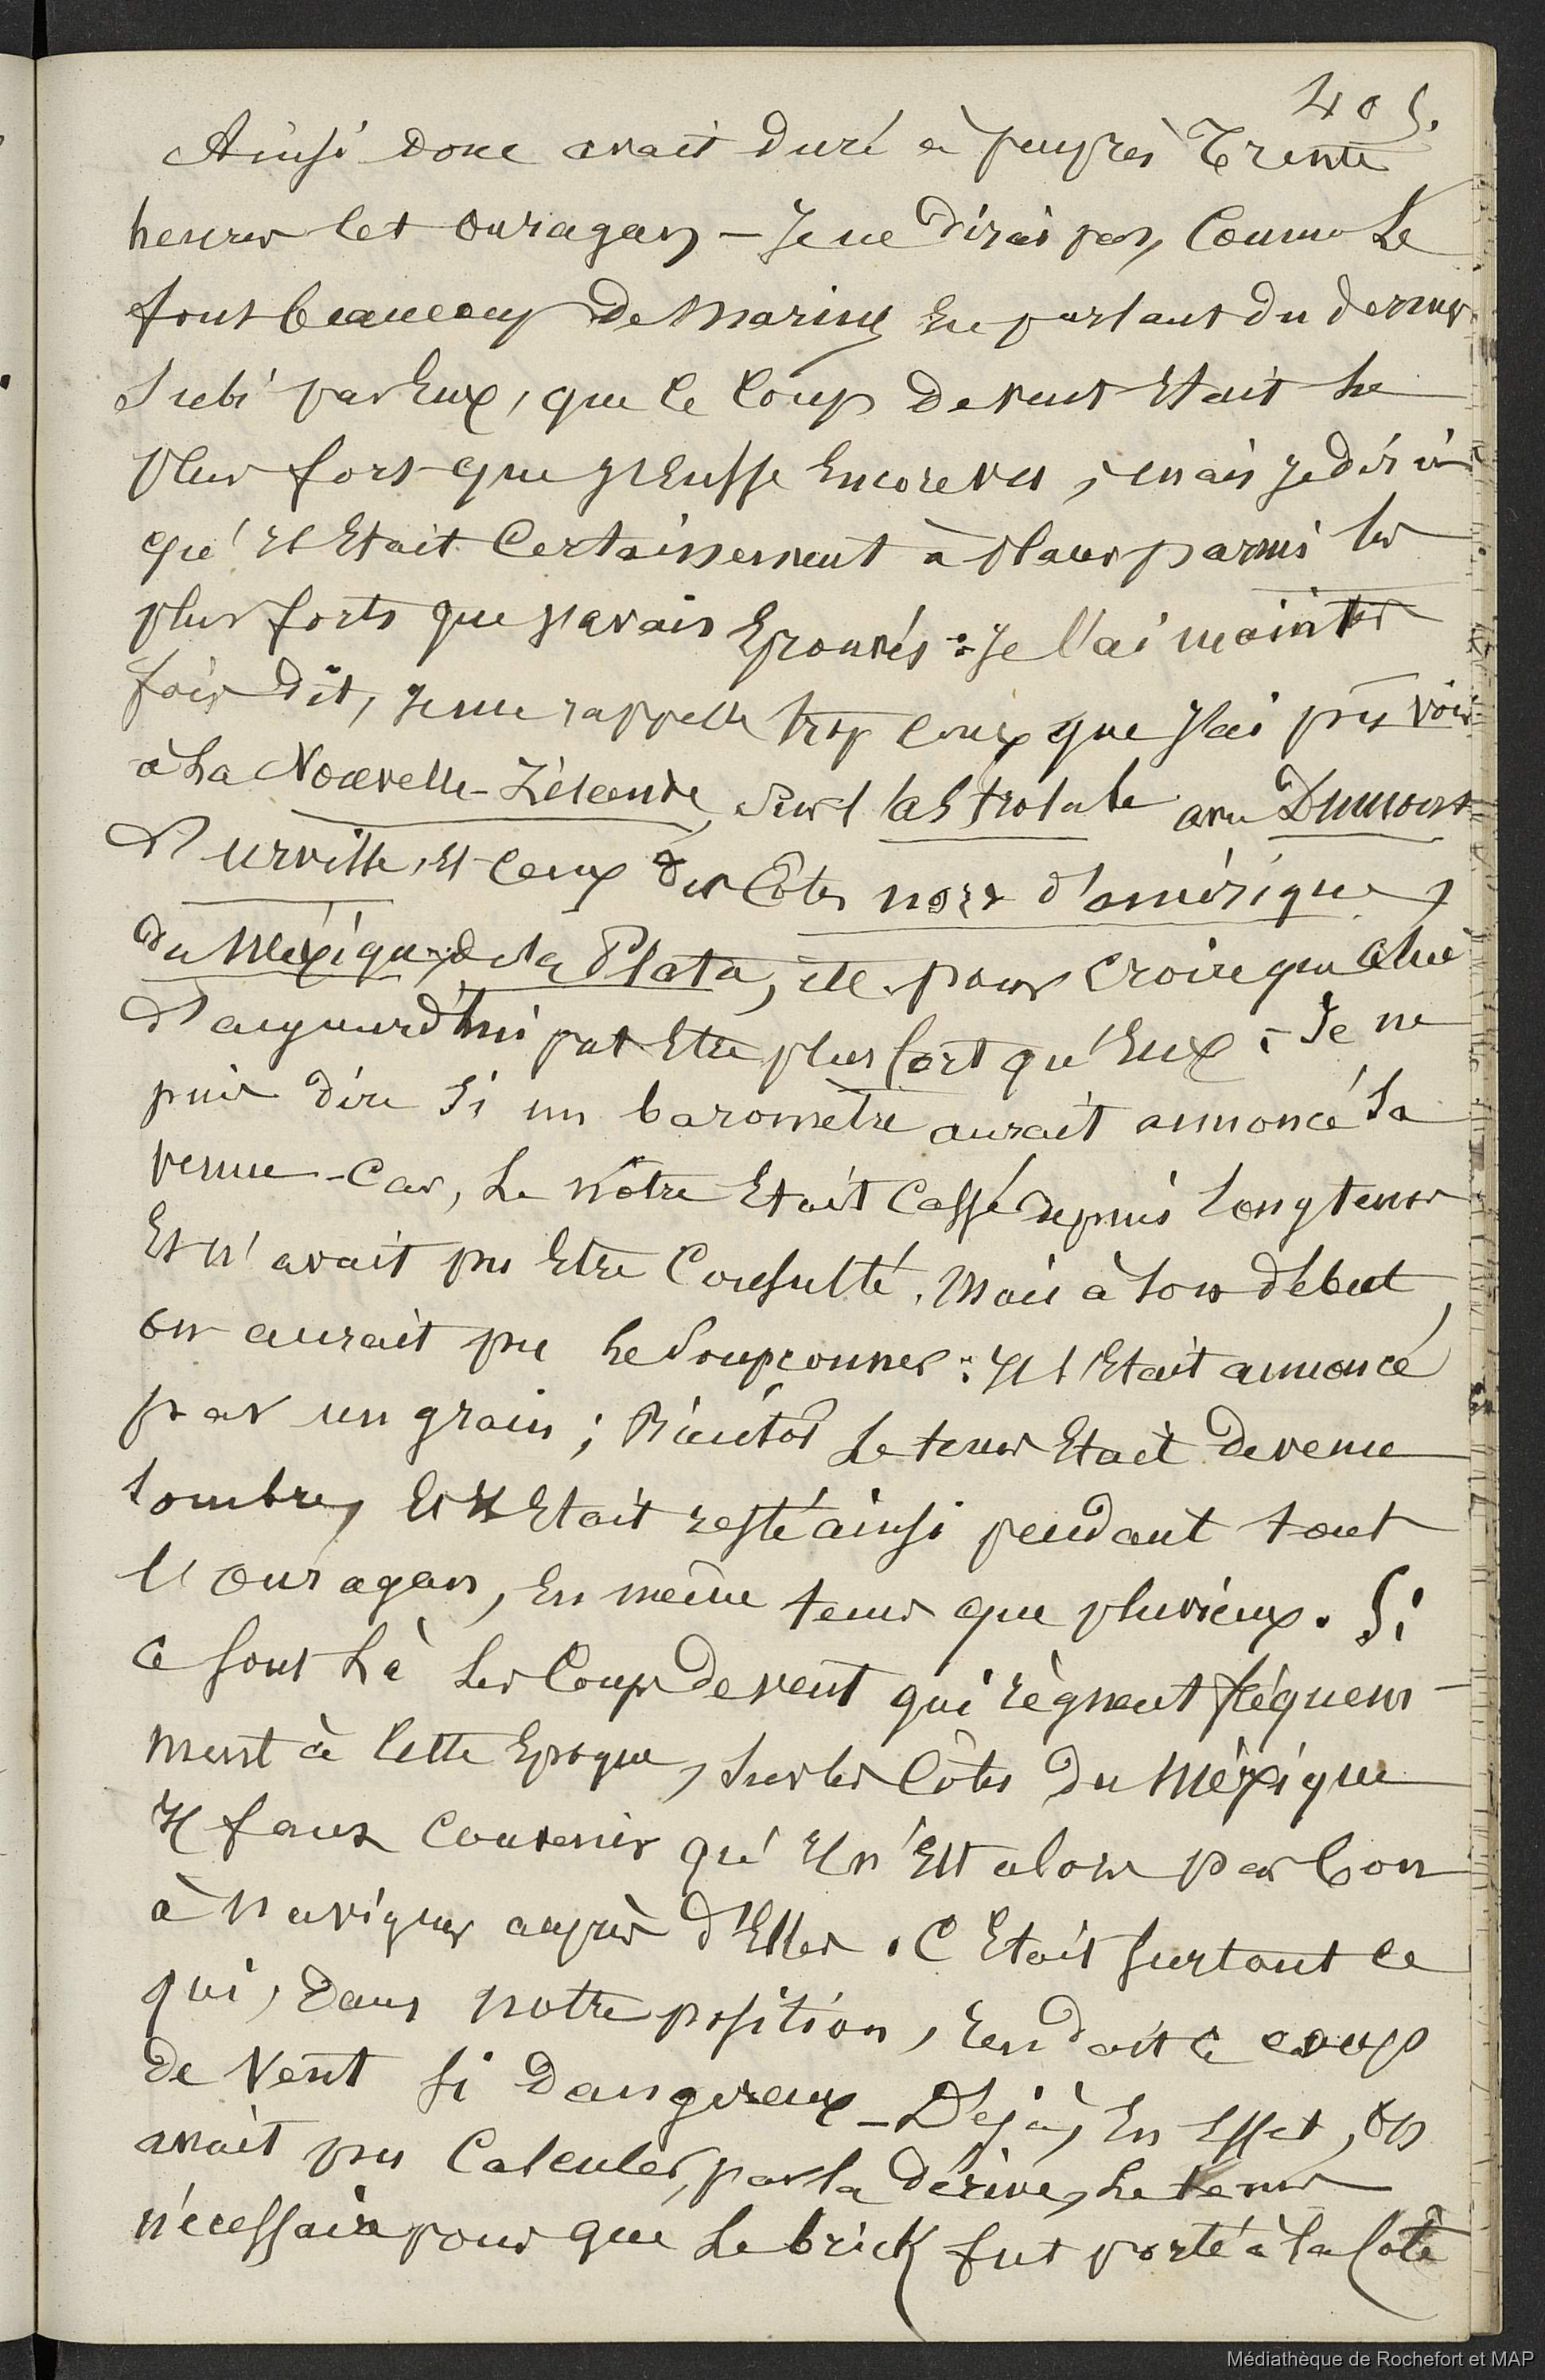 405.
Ainsi donc avait duré à peuprès Trente
heures cet ouragan – Je ne dirai pas, Comme Le
font beaucoup De Marins En parlant du dernier
Subi par Eux, que ce Coup de vent Etait Le
plus fort que j'Eusse Encore vu ; mais je dirai
qu'Il Etait Certainement à placer parmi les
plus forts que j'avais Eprouvés : Je l'ai maintes
fois dit, je me rappelle trop Ceux que j'ai pu voir
à La Nouvelle-Zélende, sur l'astrolabe avec Dumont
d'urville, Et Ceux des Côtes nord d'amérique,
du Méxique, de la Plata, pour Croire que Celui
d'aujourd'hui put Etre plus fort qu'Eux. – Je ne
puis dire Si un barometre aurait annoncé Sa
venue – Car, Le Nôtre Etait Cassé depuis Longtems
Et n'avait pu Etre Consulté. Mais à Son début,
on aurait pu Le Soupçonner : Il s'Etait annoncé
par un grain ; Bientôt Le tems Etait devenu
Sombre, Et Il Etait resté ainsi pendant tout
l'ouragan, En même tems que pluvieux. Si
ce sont Là Les Coups de vent qui règnent fréquem-
ment à Cette Epoque, Sur les Côtes du Méxique
Il faut Convenir qu'Il n'Est alors pas bon
à Naviguer auprès d'Elles. C'Etait Surtout ce
qui, Dans Notre position, rendait ce coup
de Vent si Dangereux – Déjà, En Effet, on
avait pu Calculer, par la dérive, Le tems
nécessaire pour que Le brick fut porté à la Côte
Médiathèque de Rochefort et MAP